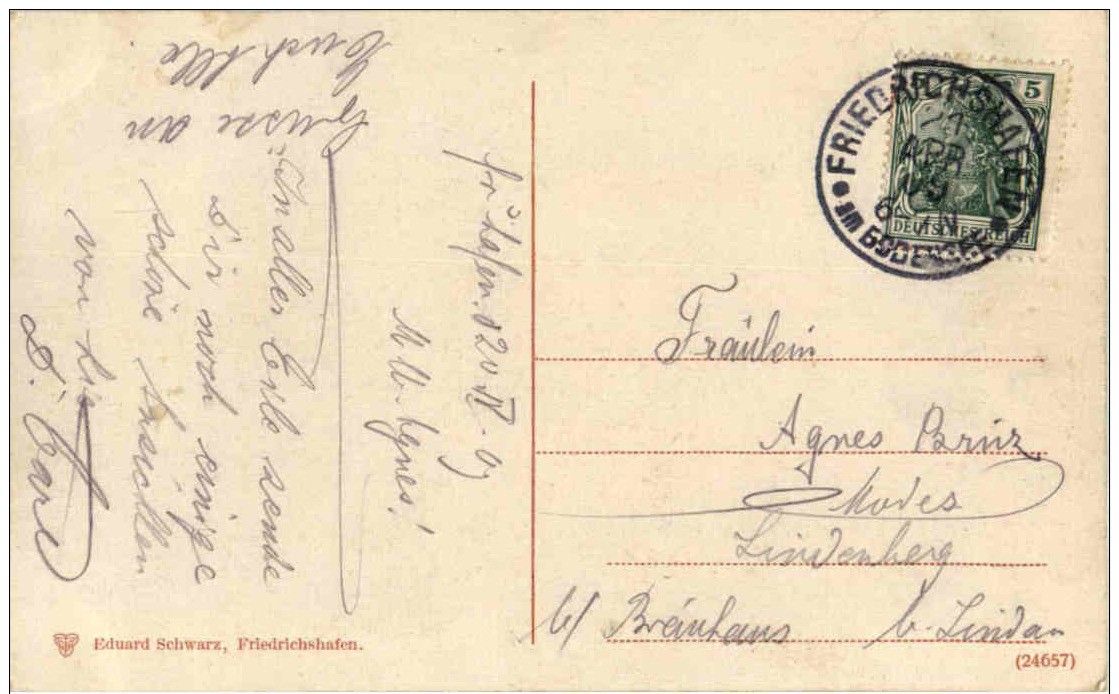 Fr'hafen. d 20 IV. 09
M. lb. Agnes!
In aller Eile sende
Dir noch einige
schöne
von hier
D. Carl
Grüsse an
Euch Alle
FRIEDRICHSHAFEN
21
APR
09
6-7N
am BODENSEE
5
DEUTSCHES REICH
Fräulein
Agnes
Modes
Lindenberg
b/ Bräuhaus b. Lindau
Eduard Schwarz, Friedrichshafen.
(24657)